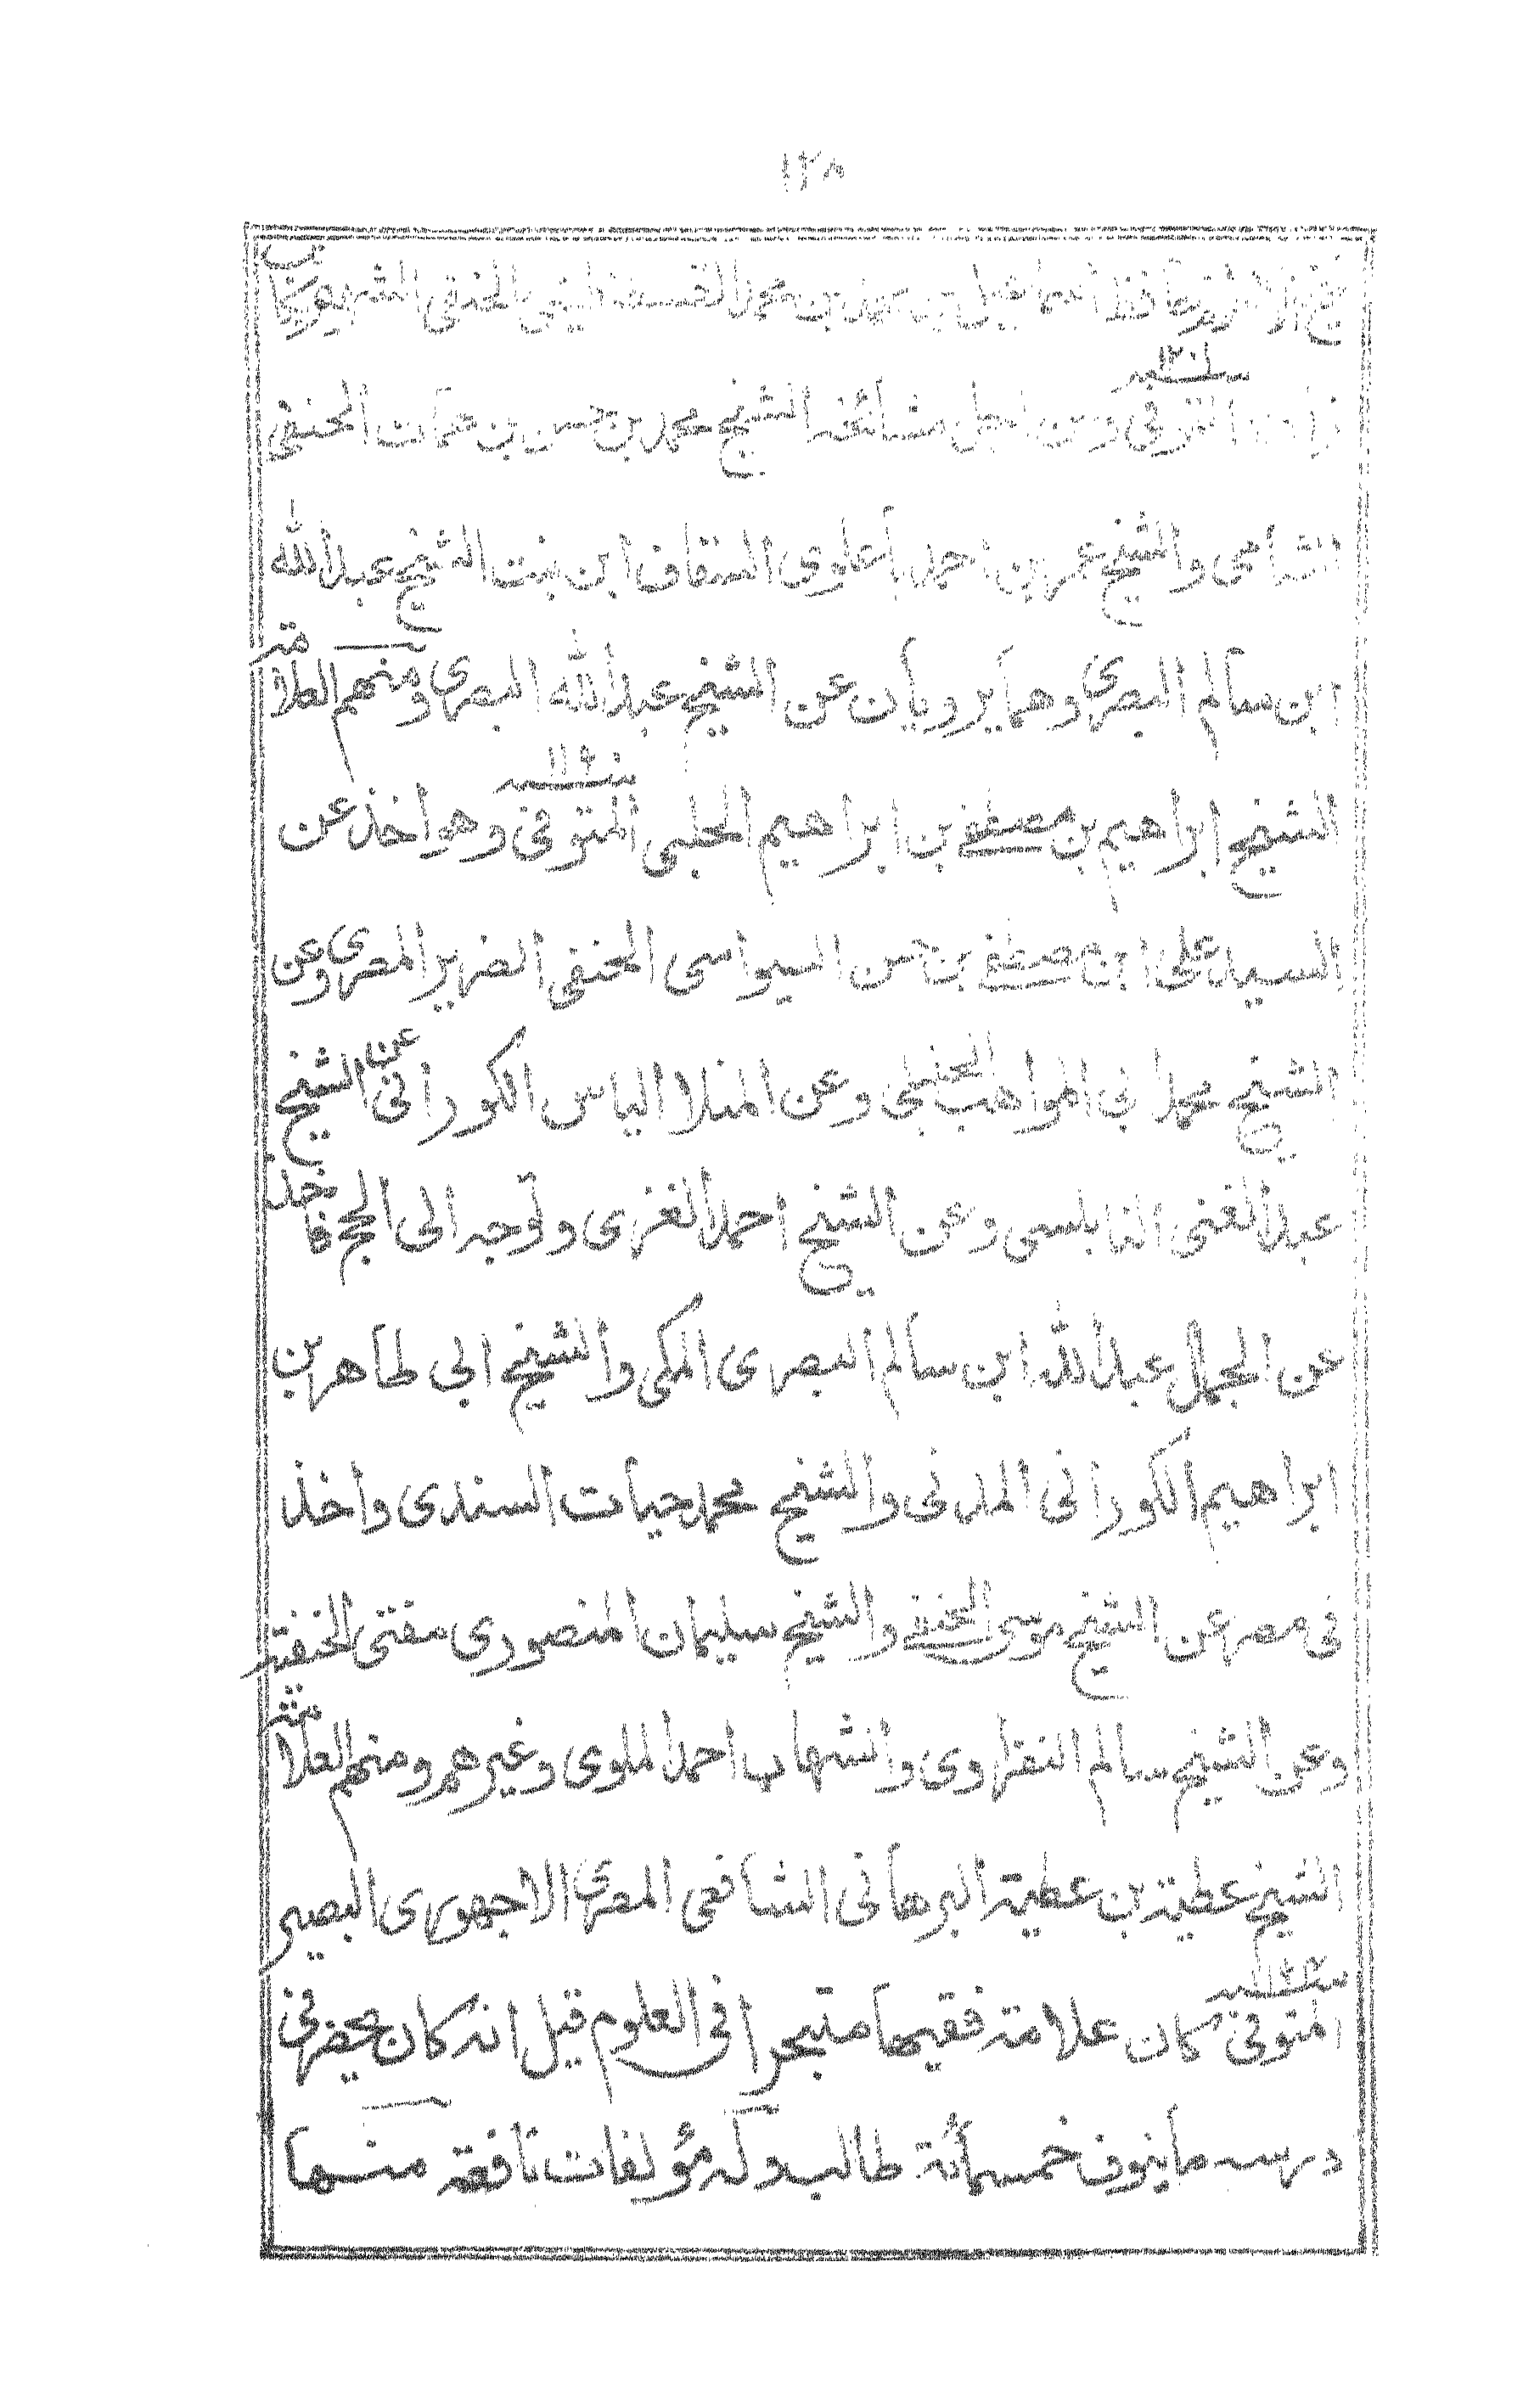 ١٢٨
اسماعيل بن محمد بن محمد القسطنطيني الحنفي الشهير بكاتب
زاده المتوفى سنة ١٢٠١ ومن اجل مشائخه الشيخ محمد بن حسن بن همات الحنفي
الشامي والشيخ عمر بن احمد باعلوي السقاف ابن بنت الشيخ عبد الله
ابن سالم البصري وهما يرويان عن الشيخ عبد الله البصري ومنهم العلامة
الشيخ ابراهيم بن مصطفے بن ابراهيم الحلبي المتوفى سنة ١١٩٠ وهو اخذ عن
السيد علي ابن مصطفے بن حسن السيواسي الحنفي الضرير المصري وعن
الشيخ محمد ابي المواهب الحنبلي وعن المنلا الياس الكوراني عن الشيخ
عبد الغني النابلسي وعن الشيخ احمد الغزي وتوجه الى الحج فاخذ
عن الجمال عبد الله ابن سالم البصري المكي والشيخ ابي طاهر بن
ابراهيم الكوراني المدني والشيخ محمد حيات السندي واخذ
في مصر عن الشيخ موسى الحنفے والشيخ سليمان المنصوري مفتي الحنفية
وعن الشيخ سالم النفراوي والشهاب احمد الملوي وغيرهم ومنهم العلامة
الشيخ عطية بن عطية البرهاني الشافعي المصري الاجهوري البصير
المتوفى سنة كان علامة فقيها متبحرا في العلوم قيل انه كان يحضر في
درسه ما ينوف خمسمائة طالب وله مؤلفات نافعة منها